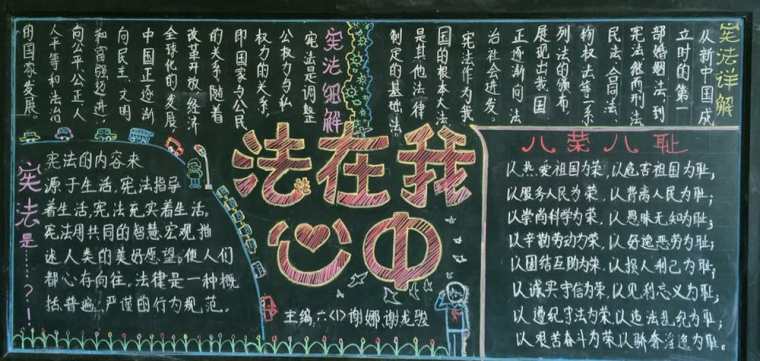 宪法详解
从新中国成
立时的第一
部婚姻法，到
宪法继而刑法
民法合同法，
物权法等一系
列法的颁布，
展现出我国
正逐渐向法
治社会迸发。
宪法作为我
国的根本大法
是其他法律
制定的基础法。
宪法细解
宪法是调整
公权力与私
权力的关系，
即国家与公民
的关系。随着
改革开放，经济
全球化的发展，
中国正逐渐
向民主，文明
和富强超进
向公平公正人
人平等和法治
的国家发展。
法在我
心中
主编：六〈1〉谢娜 谢龙骏
宪法是……？！
宪法的内容来
源于生活，宪法指导
着生活，宪法充实着生活。
宪法用共同的智慧，宏观描
述人类的美好愿望。使人们
都心存向往，法律是一种概
括，普遍，严谨的行为规范。
八荣八耻
以热爱祖国为荣，以危害祖国为耻；
以服务人民为荣，以背离人民为耻；
以崇尚科学为荣，以愚昧无知为耻；
以辛勤劳动为荣，以好逸恶劳为耻；
以团结互助为荣，以损人利己为耻；
以诚实守信为荣，以见利忘义为耻；
以遵纪守法为荣，以违法乱纪为耻；
以艰苦奋斗为荣，以骄奢淫逸为耻。